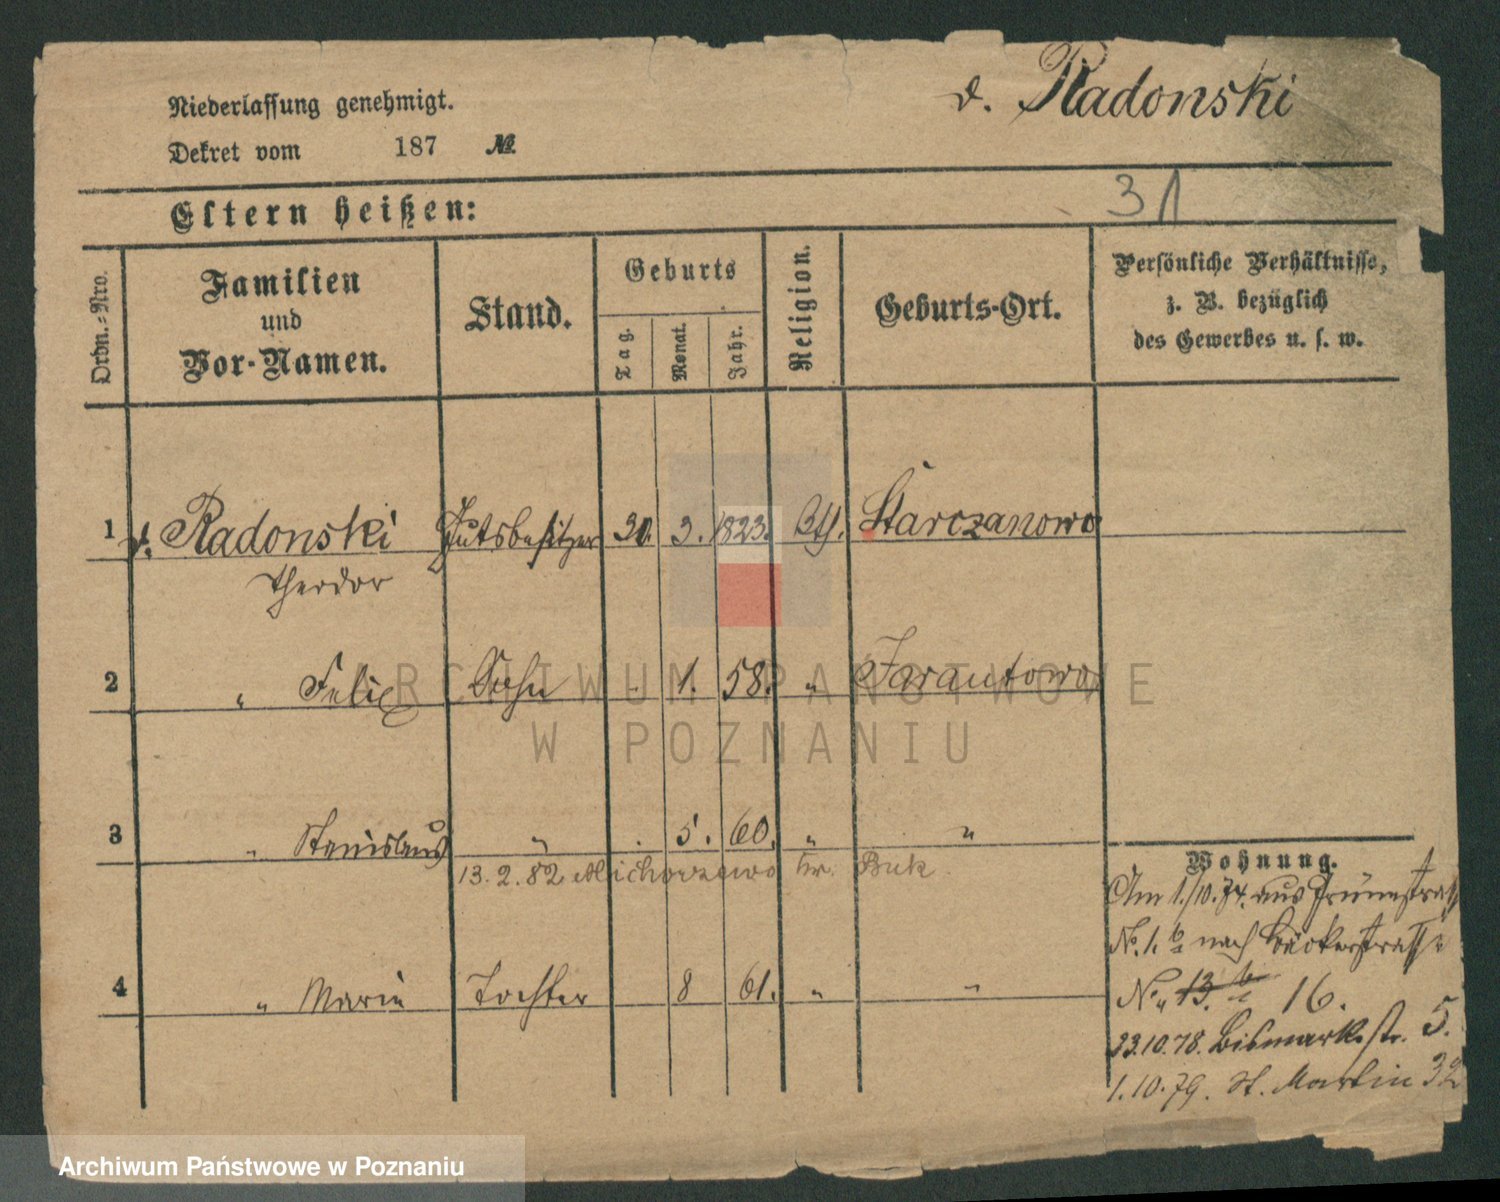 v. Radonski
Niederlassung genehmigt.
Dekret vom 187 №
31
Eltern heißen:
Ordn.-Nro.
Familien
und
Vor-Namen.
Stand.
Geburts
Tag.
Monat.
Jahr.
Religion.
Geburts-Ort.
Persönliche Verhältnisse,
z. B. bezüglich
des Gewerbes u. s. w.
1 v. Radonski Gutsbesitzer 30. 3. 1823. Starczanowo
Theodor
2 " Felix Sohn . 1. 58. "
3 " Stanislaus " . 5. 60. " "
13.2.82 Michorzewo Kr. Buk
4 " Marie Tochter 8 61. " "
Wohnung.
Am 1./10.74. aus Grünestrasse
No. 1. b nach Bäckerstrasse
No. 13. b 16.
23.10.78. Bismarkstr. 5.
1.10.79. St. Martin 32
ARCHIWUM PAŃSTWOWE
W POZNANIU
Archiwum Państwowe w Poznaniu